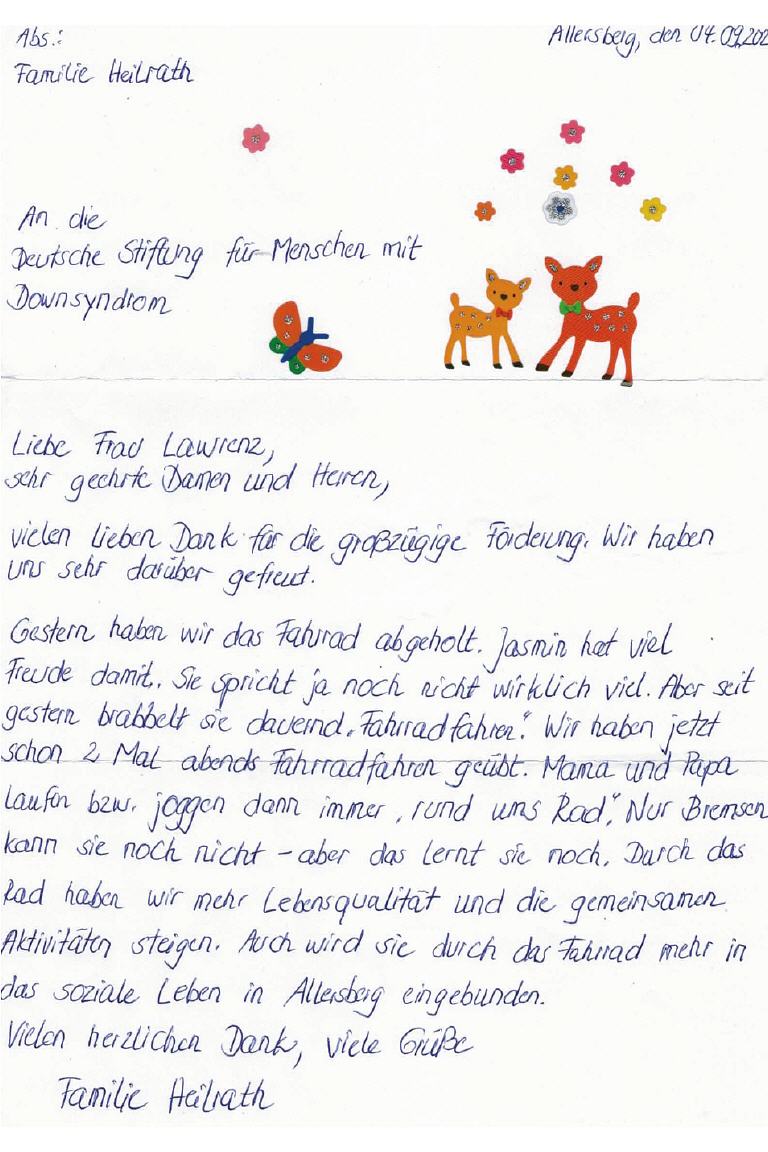 Abs.:
Allersberg, den 04.09.202
Familie Heilrath
An die
Deutsche Stiftung für Menschen mit
Downsyndrom
Liebe Frau Lawrenz,
sehr geehrte Damen und Herren,
vielen lieben Dank für die großzügige Förderung. Wir haben
uns sehr darüber gefreut.
Gestern haben wir das Fahrrad abgeholt. Jasmin hat viel
Freude damit. Sie spricht ja noch nicht wirklich viel. Aber seit
gestern brabbelt sie dauernd „Fahrradfahren“. Wir haben jetzt
schon 2 Mal abends Fahrradfahren geübt. Mama und Papa
laufen bzw. joggen dann immer „rund ums Rad“. Nur Bremsen
kann sie noch nicht – aber das lernt sie noch. Durch das
Rad haben wir mehr Lebensqualität und die gemeinsamen
Aktivitäten steigen. Auch wird sie durch das Fahrrad mehr in
das soziale Leben in Allersberg eingebunden.
Vielen herzlichen Dank, viele Grüße
Familie Heilrath